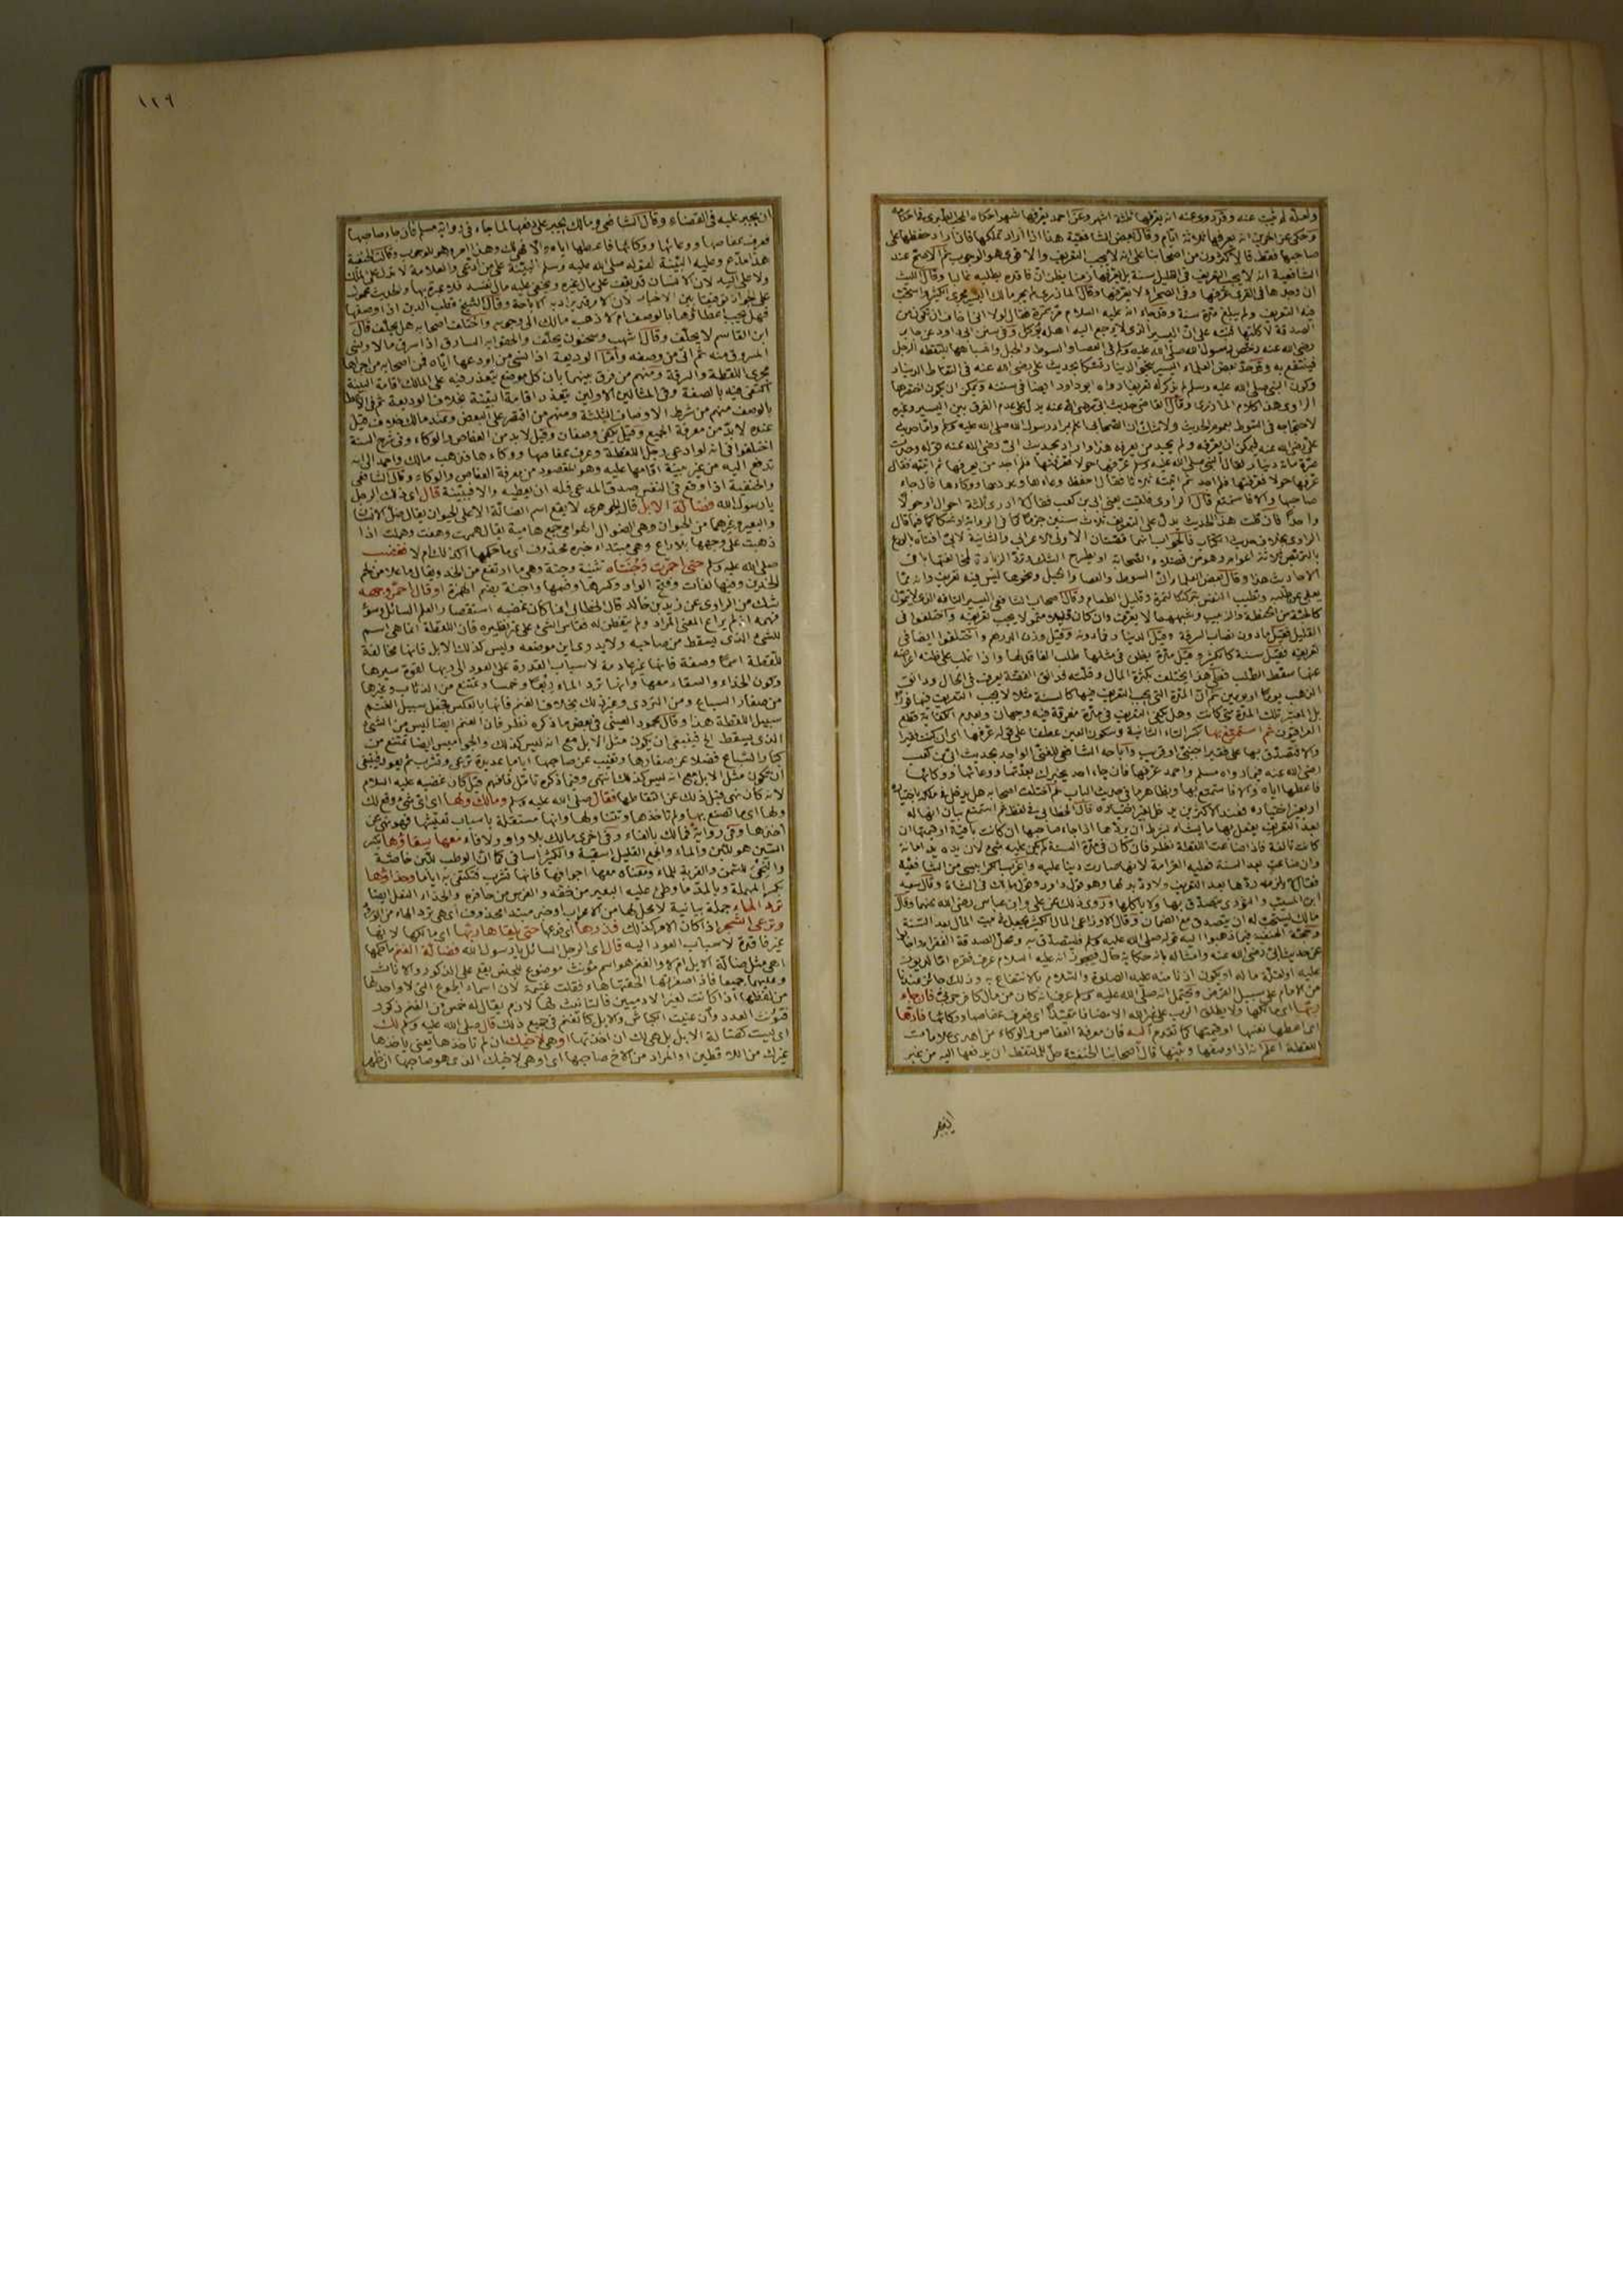 ولعله لم يثبت عنه وقد روى عنه انه يعرفها ثلثة اشهر وعن احمد يعرفها شهرا حكاه المحب الطبرى فى احكامه
وحكى عن آخرين انه يعرفها ثلاثة ايام وقال بعض الشافعية هذا اذا اراد تملكها فان اراد حفظها على
صاحبها فقط فالاكثرون من اصحابنا على انه لا يجب التعريف والاقوى هو الوجوب ثم الاصح عند
الشافعية انه لا يجب التعريف فى القليل سنة بل يعرفها زمنا يظن ان فاقده يطلبه غالبا وقال الليث
ان وجدها فى القرى عرفها وفى الصحراء لا يعرفها وقال المازرى لم يجر مالك اليسير مجرى الكثير واستحب
فيه التعريف ولم يبلغ مدة سنة وقد جاء انه عليه السلام مر بتمرة فقال لولا انى اخاف ان تكون من
الصدقة لاكلتها فنبه على ان اليسير الذى لا يرجع اليه اهله يؤكل وفى سنن ابى داود عن جابر
رضى الله عنه رخص رسول الله صلى الله عليه وسلم فى العصا والسوط والحبل واشباهها يلتقطه الرجل
فينتفع به وقد حد بعض العلماء اليسير بنحو الدينار تمسكا بحديث على رضى الله عنه فى التقاط الدينار
وكون النبى صلى الله عليه وسلم لم يذكر له تعريفا رواه ابو داود ايضا فى سننه ويمكن ان يكون اختصرها
الراوى هذا كلام المازرى وقال القاضى حديث ابى رضى الله عنه يدل على عدم الفرق بين اليسير وغيره
لاحتجاجه فى السوط بعموم الحديث
صرة مائة دينار فقال النبى صلى الله عليه وسلم عرفها حولا فعرفتها فلم اجد من يعرفها ثم اتيته فقال
عرفها حولا فعرفتها فلم اجد ثم اتيته ثالثا فقال احفظ وعاءها وعددها ووكاءها فان جاء
صاحبها والا فاستمتع قال الراوى فلقيت يعنى ابى بن كعب فقال لا ادرى ثلثة احوال او حولا
واحدا فان قلت هذا الحديث يدل على التعريف ثلاث سنين
الاحاديث هذا وقال بعض العلماء ان السوط والعصا والحبل ونحوها ليس فيه تعريف وانه مما
يعفى عن طلبه وتطيب النفس بتركه كالتمرة وقليل الطعام وقال اصحاب الشافعى اليسير التافه الذى لا يتمول
كالحبة من الحنطة والزبيب وشبههما لا يعرف وان كان قليلا متمولا يجب تعريفه واختلفوا فى
القليل فقيل ما دون نصاب السرقة وقيل الدينار فما دونه وقيل وزن الدرهم واختلفوا ايضا فى
تعريفه فقيل سنة كالكثير وقيل مدة يظن فى مثلها طلب الفاقد لها واذا غلب على ظنه اعراضه
عنها سقط الطلب فعلى هذا يختلف بكثرة المال وقلته فدانق الفضة يعرف فى الحال ودانق
الذهب يوما او يومين ثم ان المدة التى يجب التعريف فيها كالسنة مثلا لا يجب التعريف فيها فورا
بل المعتبر تلك المدة متى كانت وهل يكفى التعريف فى مدة مفرقة فيه وجهان
العراقيون ثم استمتع بها بكسر التاء الثانية وسكون العين عطفا على قوله عرفها اى ان كنت فقيرا
والا فتصدق بها على فقير اجنبى او قريب واباحه الشافعى للغنى الواجد بحديث ابى بن كعب
رضى الله عنه فيما رواه مسلم واحمد عرفها فان جاء احد يخبرك بعدتها ووعائها ووكائها
فاعطها اياه والا فاستمتع بها وبظاهر ما فى حديث الباب ثم اختلف اصحابه هل يدخل فى ملكه باختياره
او بغير اختياره فعند الاكثرين يدخل بغير اختياره قال الخطابى فى لفظ ثم استمتع بيان انها له
بعد التعريف يفعل بها ما يشاء بشرط ان يردها اذا جاء صاحبها ان كانت باقية او قيمتها ان
كانت تالفة فاذا ضاعت اللقطة نظر فان كان فى مدة السنة لم يكن عليه شىء لان يده يد امانة
وان ضاعت بعد السنة فعليه الغرامة لانها صارت دينا عليه واغرب الكرابيسى من الشافعية
فقال لا يلزمه ردها بعد التعريف ولا رد بدلها وهو قول داود وقول مالك فى الشاة وقال سعيد
ابن المسيب والثورى يتصدق بها ولا ياكلها وروى ذلك عن على وابن عباس رضى الله عنهما وقال
مالك يستحب له ان يتصدق مع الضمان وقال الاوزاعى المال الكثير يجعل فى بيت المال بعد السنة
وحجة الحنفية فيما ذهبوا اليه قوله صلى الله عليه وسلم فليتصدق به ومحل الصدقة الفقراء واجابوا
عن حديث ابى رضى الله عنه وامثاله بانه حكاية حال فيجوز انه عليه السلام عرف فقره اما لديون
عليه او لقلة ماله او يكون اذنا منه عليه الصلوة والسلام بالانتفاع به وذلك جائز عندنا
من الامام على سبيل القرض ويحتمل انه صلى الله عليه وسلم عرف انه كان من مال كافر حربى فان جاء
ربها اى مالكها ولا يطلق الرب على غير الله الا مضافا مقيدا اى فعرف عفاصها ووكائها فادها
اى اعطها بعينها او قيمتها كما تقدم اليه فان معرفة العفاص والوكاء من احدى علامات
اللقطة اعلم انه اذا وصفها وبينها قال اصحابنا الحنفية حل للملتقط ان يدفعها اليه من غير
١٢٩
ان يجبر عليه فى القضاء وقال الشافعى ومالك يجبر على دفعها لما جاء فى رواية مسلم فان جاء صاحبها
فعرف عفاصها ووعائها ووكائها فاعطها اياه والا فهى لك وهذا امر وهو للوجوب وقالت الحنفية
هذا مدع وعليه البينة لقوله صلى الله عليه وسلم البينة على من ادعى والعلامة لا تدل على الملك
ولا على اليد لان الانسان قد يقف على مال غيره ويخفى عليه مال نفسه فلا عبرة بها والحديث محمول
على الجواز توفيقا بين الاخبار لان الامر قد يراد به الاباحة وقال الشيخ قطب الدين اذا وصفها
فهل يجب اعطاؤها بالوصف ام لا ذهب مالك الى وجوبه واختلف اصحابه هل يحلف قال
ابن القاسم لا يحلف وقال اشهب وسحنون يحلف والحقوا به السارق اذا سرق مالا ونسى
المسروق منه ثم اتى من وصفه واما الوديعة اذا نسى من اودعها اياه فمن اصحابه من اجراها
مجرى اللقطة والسرقة ومنهم من فرق بينهما بان كل موضع يتعذر فيه على المالك اقامة البينة
اكتفى فيه بالصفة وفى المثالين الاولين يتعذر اقامة البينة بخلاف الوديعة
بالوصف منهم من شرط الاوصاف الثلثة ومنهم من اقتصر على البعض وعند مالك خلاف قيل
عنده لا بد من معرفة الجميع وقيل يكفى وصفان وقيل لا بد من العفاص والوكاء وفى شرح السنة
اختلفوا فى انه لو ادعى رجل اللقطة وعرف عفاصها ووكاءها فذهب مالك واحمد الى انه
تدفع اليه من غير بينة اقامها عليه وهو المقصود من معرفة العفاص والوكاء وقال الشافعى
والحنفية اذا وقع فى النفس صدق المدعى فله ان يعطيه والا فببينة قال اى ذلك الرجل
يا رسول الله فضالة الابل قال الجوهرى لا يقع اسم الضالة الا على الحيوان يقال ضل الانسان
والبعير وغيرهما من الحيوان وهى الضوال الهوامى جمع هامية يقال همت وهفت وهملت اذا
ذهبت على وجهها بلا راع وهى مبتداء خبره محذوف اى ما حكمها اكذلك ام لا فغضب
صلى الله عليه وسلم حتى احمرت وجنتاه تثنية وجنة وهى ما ارتفع من الخد ويقال ما علا من لحم
الخدين وفيها لغات وفتح الواو وكسرها وضمها واجنة بضم الهمزة او قال احمر وجهه
شك من الراوى عن زيد بن خالد قال الخطابى انما كان غضبه استقصارا لعلم السائل وسوء
فهمه اذ لم يراع المعنى المراد ولم يتفطن له فقاس الشىء على غير نظيره فان اللقطة انما هى اسم
للشىء الذى يسقط من صاحبه ولا يدرى اين موضعه وليس كذلك الابل فانها مخالفة
للقطة اسما وصفة فانها غير عادمة لاسباب القدرة على العود الى ربها لقوة سيرها
وكون الحذاء والسقاء معها وانها ترد الماء ربعا وخمسا وتمتنع من الذئاب وغيرها
من صغار السباع ومن التردى وغير ذلك بخلاف الغنم فانها بالعكس فجعل سبيل الغنم
سبيل اللقطة هذا وقال محمود العينى فى بعض ما ذكره نظر فان الغنم ايضا ليس من الشىء
الذى يسقط الخ فينبغى ان يكون مثل الابل مع انه ليس كذلك والجواميس ايضا تمتنع من
كبار السباع فضلا عن صغارها وتغيب عن صاحبها اياما عديدة ترعى وتشرب ثم يعود فينبغى
ان تكون مثل الابل مع انه ليس كذلك انتهى وفيما ذكره تامل فافهم قيل كان غضبه عليه السلام
لانه كان نهى قبل ذلك عن التقاطها فقال صلى الله عليه وسلم ومالك ولها اى اى شىء وقع لك
ولها اى ما تصنع بها ولم تاخذها وتتناولها وانها مستقلة باسباب تعيشها فهو نهى عن
اخذها وفى رواية فمالك بالفاء وفى اخرى مالك بلا واو ولا فاء معها سقاؤها بكسر
السين هو للبن والماء والجمع القليل اسقية والكثير اساقى كما ان الوطب للبن خاصة
والنحى للسمن والقربة للماء ومعناه معها اجوافها فانها تشرب فتكتفى به اياما وحذاؤها
بكسر المهملة وبالمد ما وطئ عليه البعير من خفه والفرس من حافره والحذاء النعل ايضا
ترد الماء جملة بيانية لا محل لها من الاعراب او خبر مبتدا محذوف اى هى ترد الماء
وترعى الشجر اذا كان الامر كذلك فذرها اى فدعها حتى يلقاها ربها اى مالكها لانها
غير فاقدة لاسباب العود اليه قال اى الرجل السائل يا رسول الله فضالة الغنم ما حكمها
اهى مثل ضالة الابل ام لا والغنم هو اسم مؤنث موضوع للجنس يقع على الذكور والاناث
وعليهما جميعا فاذا صغرتها الحقتها هاء فقلت غنيمة لان اسماء الجموع التى لا واحد لها
من لفظها اذا كانت لغير الادميين فالتانيث لها لازم يقال له خمس من الغنم ذكور
فتؤنث العدد وان عنيت الكباش والابل كالغنم فى جميع ذلك قال صلى الله عليه وسلم لك
اى ليست كضالة الابل بل هى لك ان اخذتها او هى لاخيك ان لم تاخذها يعنى ياخذها
غيرك من اللاقطين او المراد من الاخ صاحبها اى او هى لاخيك الذى هو صاحبها ان ظهر